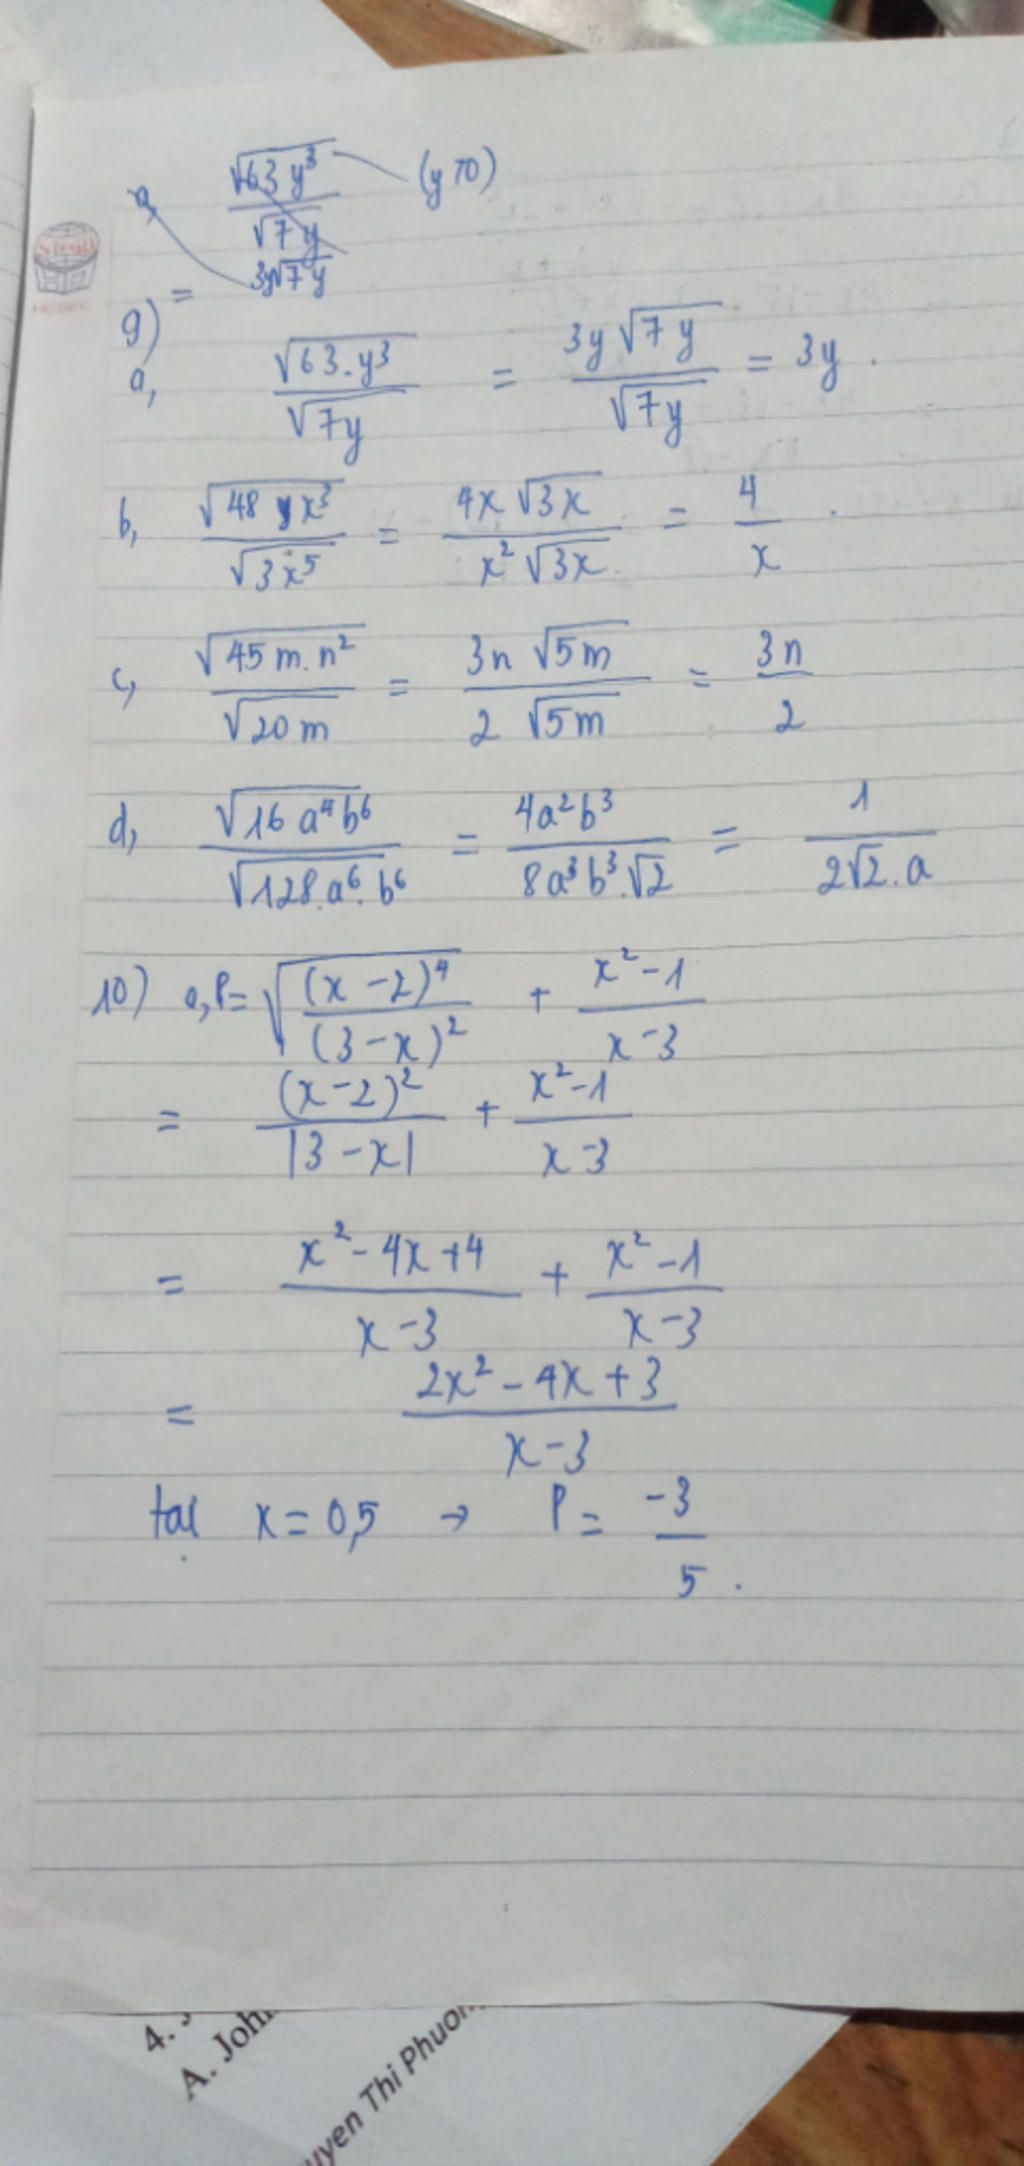 a, √63 y³ / √7y (y>0)
= 3y√7y
9)
a, √63.y³ / √7y = 3y√7y / √7y = 3y .
b, √48 x³ / √3x⁵ = 4x√3x / x²√3x = 4 / x .
c, √45m.n² / √20m = 3n√5m / 2√5m = 3n / 2
d, √16a⁴b⁶ / √128.a⁶.b⁶ = 4a²b³ / 8a³b³.√2 = 1 / 2√2.a
10) a, P = √(x-2)⁴ / (3-x)² + x²-1 / x-3
= (x-2)² / |3-x| + x²-1 / x-3
= x²-4x+4 / x-3 + x²-1 / x-3
= 2x²-4x+3 / x-3
tại x = 0,5 → P = -3 / 5 .
4.
A. John
uyen Thi Phuon